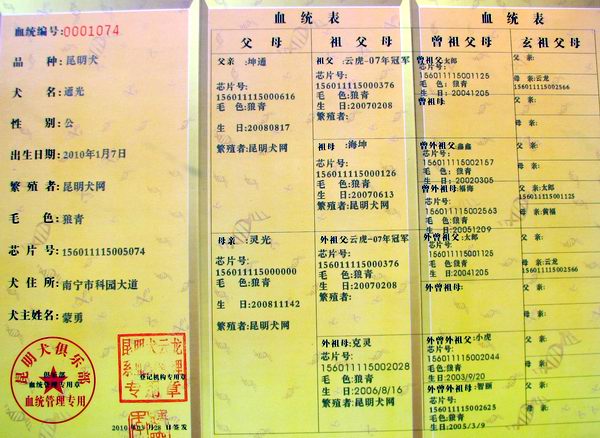 血统编号:0001074
品 种:昆明犬
犬 名:通光
性 别:公
出生日期:2010年1月7日
繁 殖 者:昆明犬网
毛 色:狼青
芯 片 号:156011115005074
犬 住 所:南宁市科园大道
犬主姓名:蒙勇
昆明犬俱乐部
俱乐部
血统管理专用章
血统管理专用
昆明犬云龙
登记机构专用章
专用章
日签发
血统表
父母
父亲:坤通
芯片号:
156011115000616
毛 色:狼青
生 日:20080817
繁殖者:昆明犬网
母亲:灵光
芯片号:
156011115000000
毛 色:狼青
生 日:200811142
繁殖者:昆明犬网
祖父母
祖父:云虎-07年冠军
芯片号:
156011115000376
毛 色:狼青
生 日:20070208
繁殖者:
祖母:海坤
芯片号:
156011115000126
毛 色:狼青
生 日:20070613
繁殖者:昆明犬网
外祖父:云虎-07年冠军
芯片号:
156011115000376
毛 色:狼青
生 日:20070208
繁殖者:
外祖母:克灵
芯片号:
156011115002028
毛 色:狼青
生 日:2006/8/16
繁殖者:昆明犬网
血统表
曾祖父母
曾祖父:太郎
芯片号:
156011115001125
毛 色:狼青
生 日:20041205
曾祖母:
曾外祖父:鑫鑫
芯片号:
156011115002157
毛色:狼青
生 日:20020305
曾外祖母:福海
芯片号:
156011115002563
毛色:狼青
生 日:20051209
曾外祖父:太郎
芯片号:
156011115001125
毛色:狼青
生 日:20041205
外曾祖母:
外曾外祖父:小虎
芯片号:
156011115002044
毛 色:狼青
生 日:2003/9/20
外曾外祖母:智丽
芯片号:
156011115002625
毛 色:狼青
生 日:2005/3/9
玄祖父母
父 亲:
母 亲:云龙
156011115002566
父 亲:
母 亲:
父 亲:
母 亲:
父 亲:太郎
156011115001125
母 亲:黄福
父 亲:
母 亲:云龙
156011115002566
父 亲:
母 亲:
父 亲:
母 亲:
父 亲:
母 亲: